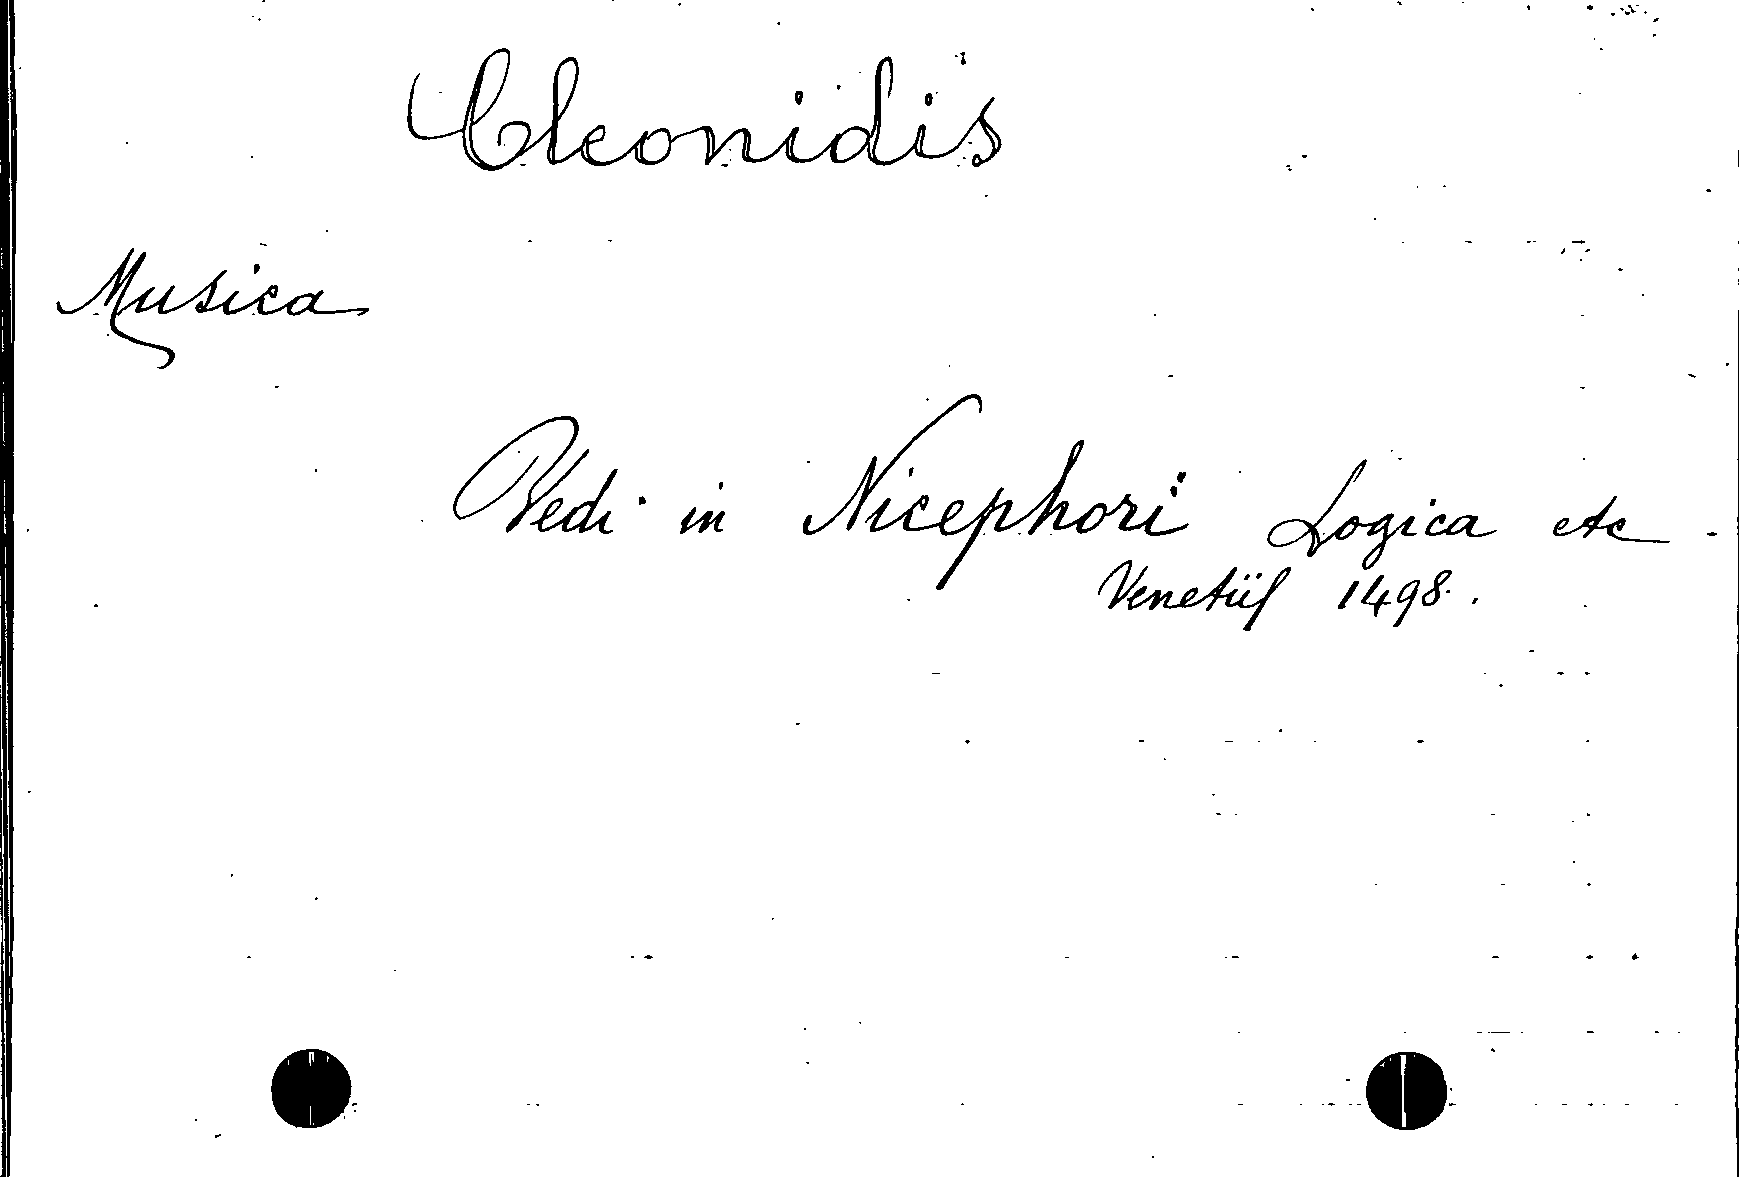 Cleonidis
Musica
Vedi in Nicephori Logica etc.
Venetiis 1498.